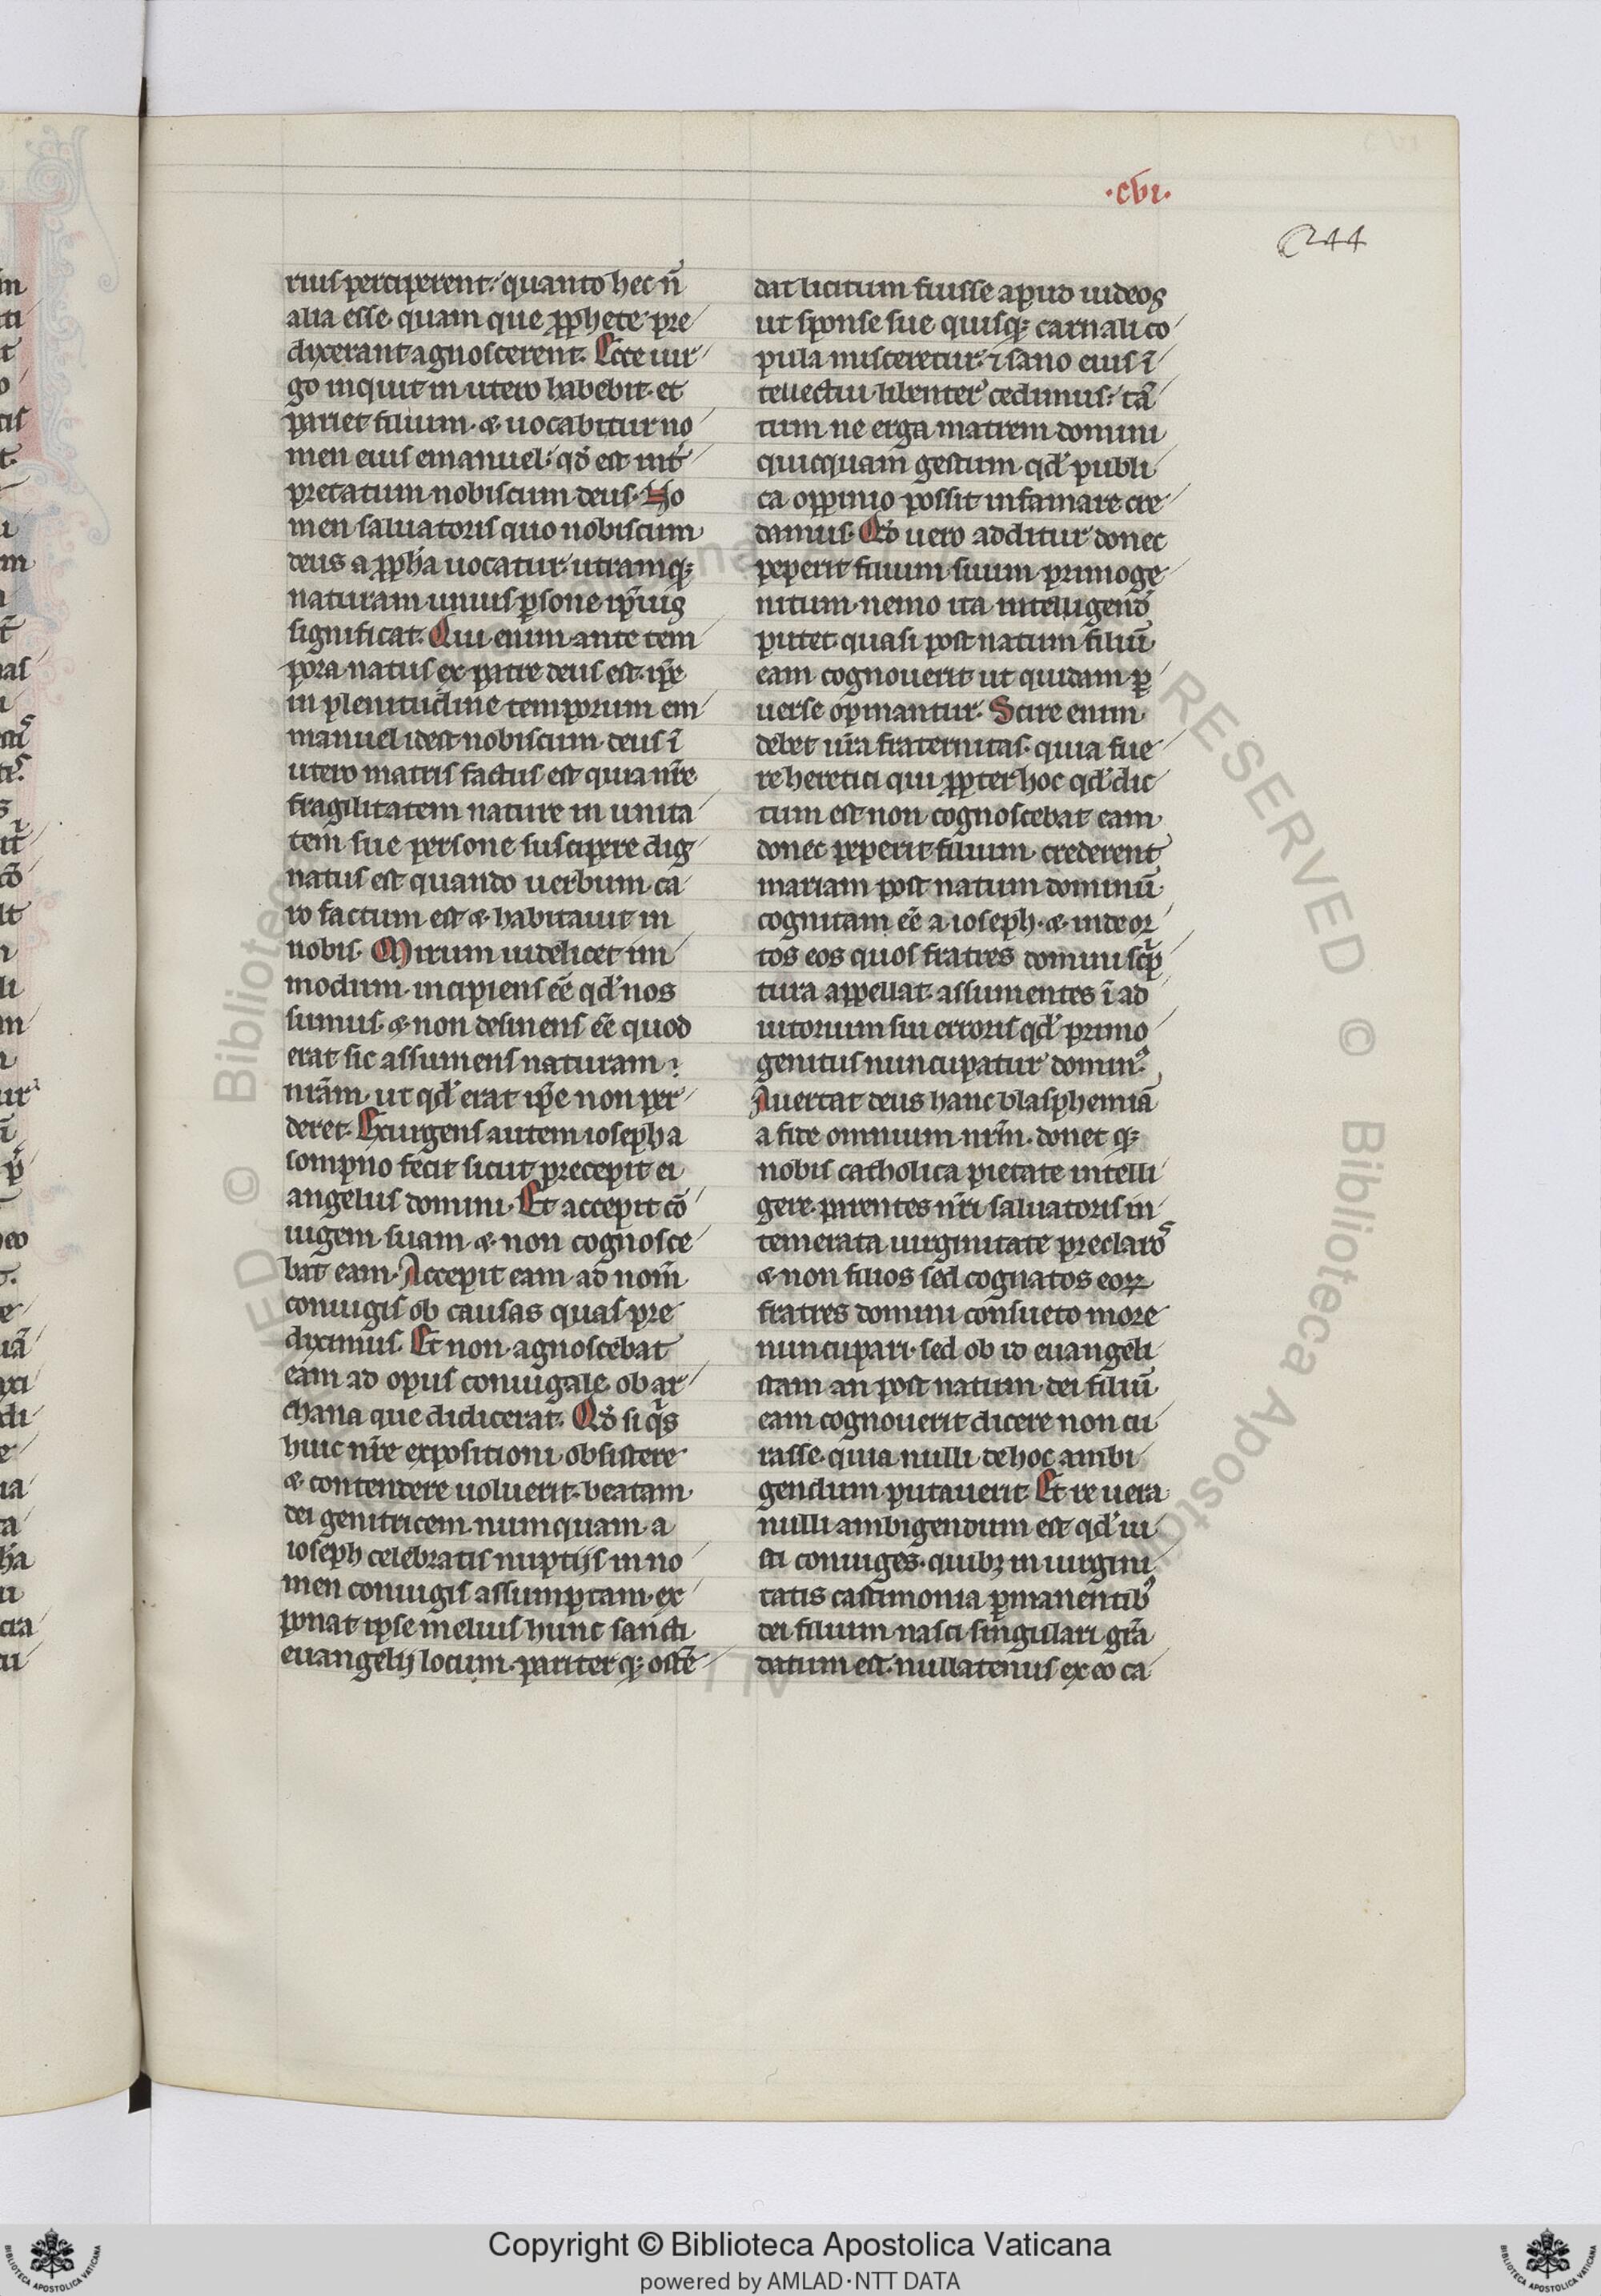 ·cvi·
244
rius perciperent: quanto hec ñ
alia esse quam que ꝓphete pre
dixerant agnoscerent. Ecce uir
go inquit in utero habebit. et
pariet filium. & uocabitur no
men eius emanuel. qđ est int͛
pretatum nobiscum deus. No
men saluatoris quo nobiscum
deus a ꝓph̄a uocatur. utramqꝫ
naturam unius ꝑsone ip̄ius
significat. Qui enim ante tem
pora natus ex patre deus est. ip̄e
in plenitudine temporum em
manuel idest nobiscum deus ī
utero matris factus est quia nr̄e
fragilitatem nature in unita
tem sue persone suscipere dig
natus est quando uerbum ca
ro factum est & habitauit in
nobis. Mirum uidelicet im
modum incipiens eē̄ qđ nos
sumus. & non desinens eē̄ quod
erat sic assumens naturam
nr̄am. ut qđ erat ip̄e non per
deret. Exurgens autem ioseph a
sompno fecit sicut precepit ei
angelus domini. Et accepit cō
iugem suam & non cognosce
bat eam. Accepit eam ad nom̄
coniugis ob causas quas pre
diximus. Et non agnoscebat
eam ad opus coniugale ob ar
chana que didicerat. Qđ si qͥs
huic nr̄e expositioni obsistere
& contendere uoluerit. beatam
dei genitricem numquam a
ioseph celebratis nuptijs in no
men coniugis assumptam. ex
ponat ipse melius hunc sancti
euangelij locum. pariterqꝫ ostē
dat licitum fuisse apud iudeos
ut sponse sue quisqꝫ carnali co
pula misceretur. ⁊ sano eius ī
tellectui libenter cedimus: tā
tum ne erga matrem domini
quicquam gestum qđ publi
ca oppinio possit infamare cre
damus. Qđ uero additur donec
peperit filium suum primoge
nitum. nemo ita intelligendō
putet. quasi post natum filiū
eam cognouerit ut quidam ꝑ
uerse opinantur. Scire enim
debet ur̄a fraternitas. quia fue
re heretici qui ꝓpter hoc qđ dic
tum est non cognoscebat eam
donec peperit filium. crederent
mariam post natum dominū
cognitam eē̄ a ioseph. & inde or
tos eos quos fratres domini sc̄ͥp
tura appellat. assumentes ī ad
iutorium sui erroris qđ primo
genitus nuncupatur dominꝰ.
Auertat deus hanc blasphemiā
a fide omnium nr̄m. donet qꝫ
nobis catholica pietate intelli
gere. parentes nr̄i saluatoris in
temerata uirginitate preclaroˢ
& non filios sed cognatos eoꝝ
fratres domini consueto more
nuncupari. sed ob id euangeli
stam an post natum dei filiū
eam cognouerit dicere non cu
rasse. quia nulli de hoc ambi
gendum putauerit. Et re uera
nulli ambigendum est qđ iu
sti coniuges. quibꝫ in uirgini
tatis castimonia ꝑmanentibꝰ
dei filium nasci singulari gr̄a
datum est. nullatenus ex eo ca
Copyright © Biblioteca Apostolica Vaticana
powered by AMLAD·NTT DATA